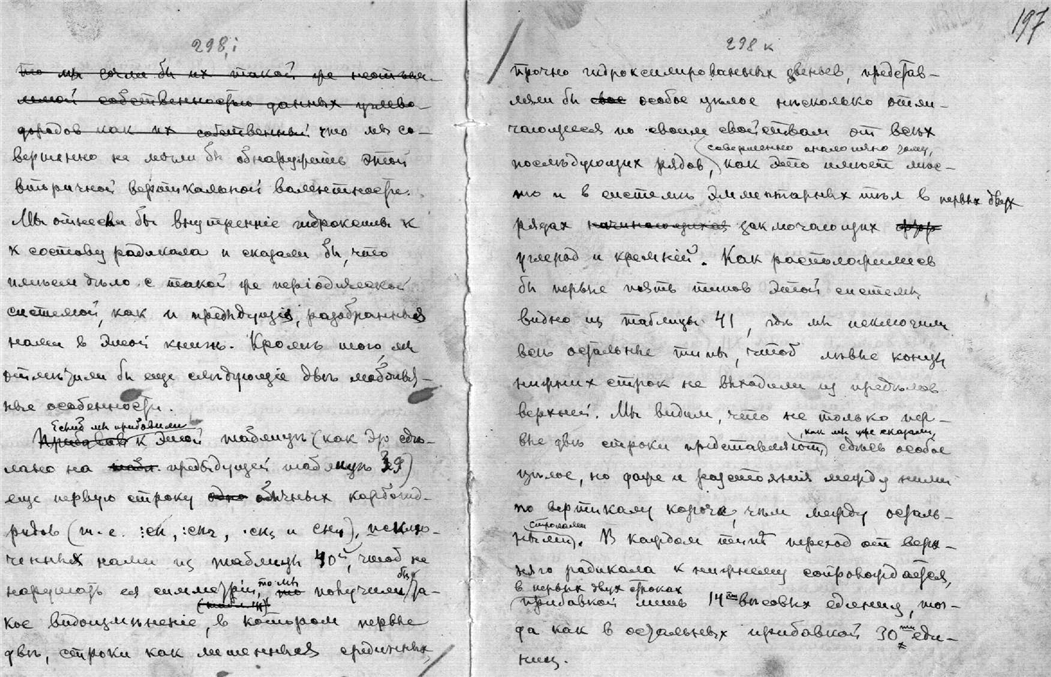 298 i
то мы сочли бы их такой же неотъем-
лемой собственностью данных углево-
дородов как их собственный что мы со-
вершенно не могли бы обнаружить этой
вторичной вертикальной валентности.
Мы отнесли бы внутренніе гидроксилы к
х составу радикала и сказали бы, что
имѣем дѣло с такой же періодической
системой, как и предыдущія, разобранныя
нами в этой книгѣ. Кромѣ того мы
отмѣтили бы еще слѣдующіе двѣ любопыт-
ные особенности.
Если б мы прибавили
к этой таблицѣ (как это сдѣ-
лано на предыдущей таблицѣ 39)
еще первую строку обычных карбогид-
ридов (т. е. :сн, :сн2, ·сн3 и сн4), исклю-
ченных нами из таблицы 40й, чтоб не
нарушать ея симметріи, то мы получили бы та-
кое видоизмѣненіе, в котором первые
двѣ, строки как лишенныя срединных
197
298 к
прочно гидроксилированных звеньев, представ-
ляли бы особое цѣлое нѣсколько отли-
чающееся по своим свойствам от всѣх
совершенно аналогично тому,
послѣдующих рядов, как это имѣет мѣс-
то и в системѣ элементарных тѣл в первых двух
рядах начинающихся заключающих
углерод и кремній. Как расположились
бы первые пять типов этой системы
видно из таблицы 41, гдѣ мы исключили
всѣ остальные типы, чтоб лѣвые концы
нижних строк не выходили из предѣлов
верхней. Мы видим, что не только пер-
как мы уже сказали,
вые двѣ строки представляют здѣсь особое
цѣлое, но даже и разстоянія между ними
по вертикали короче, чѣм между осталь-
строками
ными. В каждом типѣ переход от верх-
няго радикала к нижнему сопровождается,
в первых двух строках
прибавкой лишь 14 вѣсовых единиц, тог-
да как в остальных прибавкой 30ти еди-
ниц.